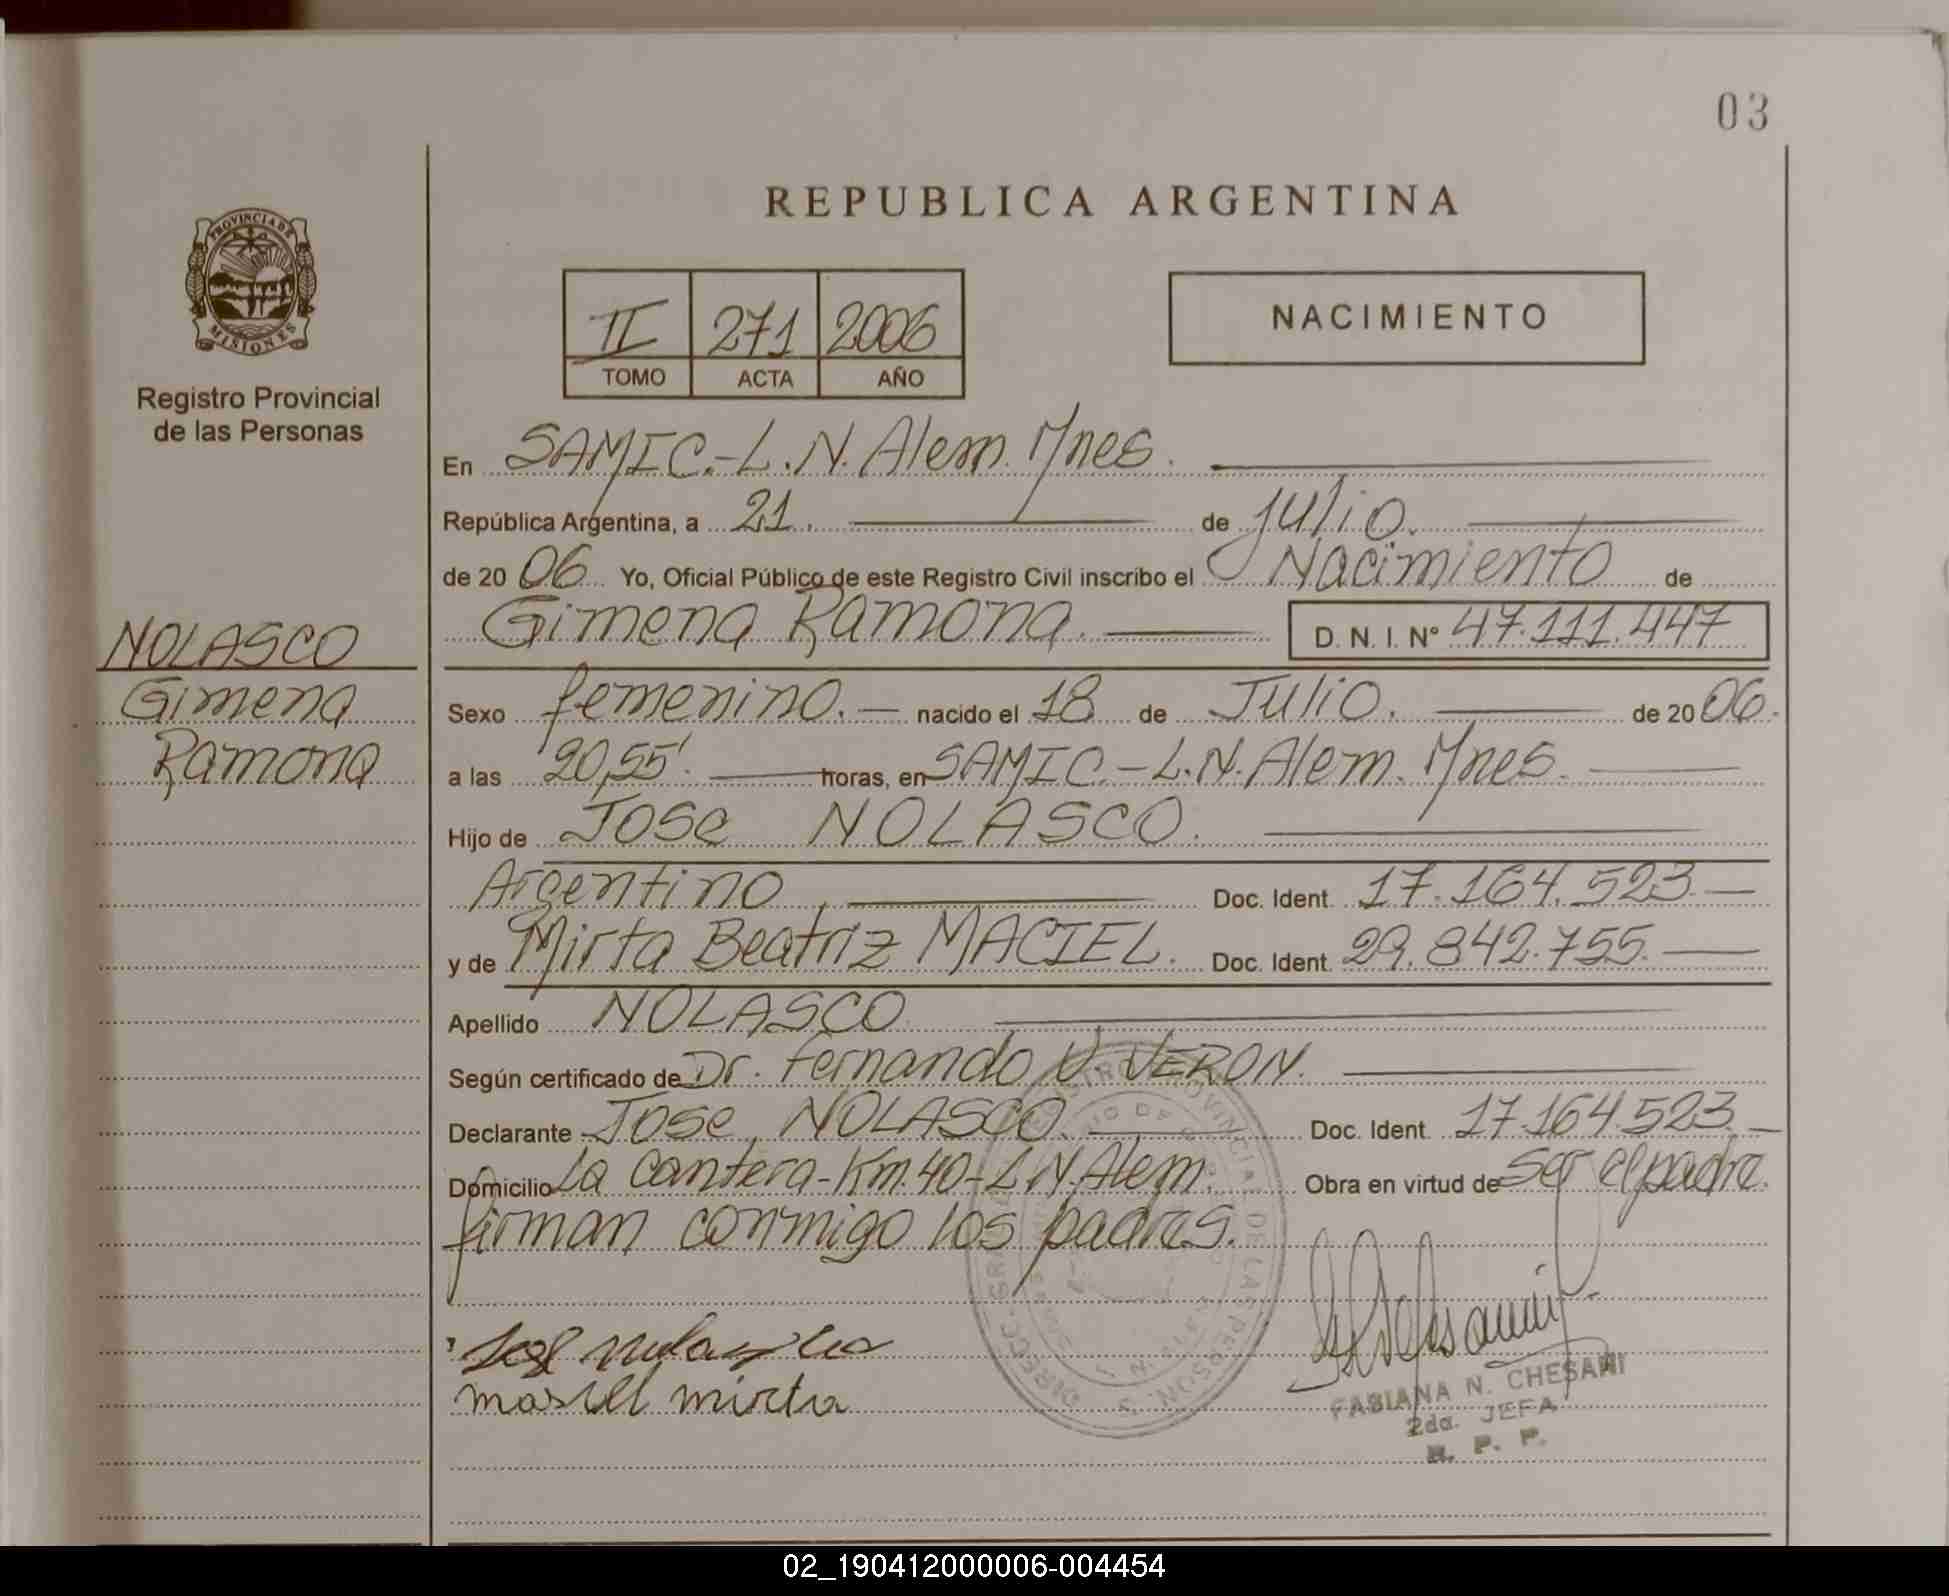 03
REPUBLICA ARGENTINA
PROVINCIA DE
MISIONES
Registro Provincial
de las Personas
II 271 2006
TOMO ACTA AÑO
NACIMIENTO
En SAMIC.-L.N. Alem. Mnes.
República Argentina, a 21. de julio.
de 20 06 Yo, Oficial Público de este Registro Civil inscribo el Nacimiento de
Gimena Ramona. D. N. I. N° 47.111.447
NOLASCO
Gimena
Ramona
Sexo femenino. nacido el 18 de Julio. de 20 06.
a las 20,55'. horas, en SAMIC.-L.N. Alem. Mnes.
Hijo de Jose NOLASCO.
Argentino Doc. Ident. 17.164.523
y de Mirta Beatriz MACIEL. Doc. Ident. 29.842.755.
Apellido NOLASCO
Según certificado de Dr. Fernando V. VERON.
Declarante Jose NOLASCO. Doc. Ident. 17.164.523
Domicilio La Cantera-Km.40-L.N. Alem. Obra en virtud de ser el padre.
firman conmigo los padres.
mirta
FABIANA N. CHESANI
2da. JEFA
R. P. P.
02_190412000006-004454